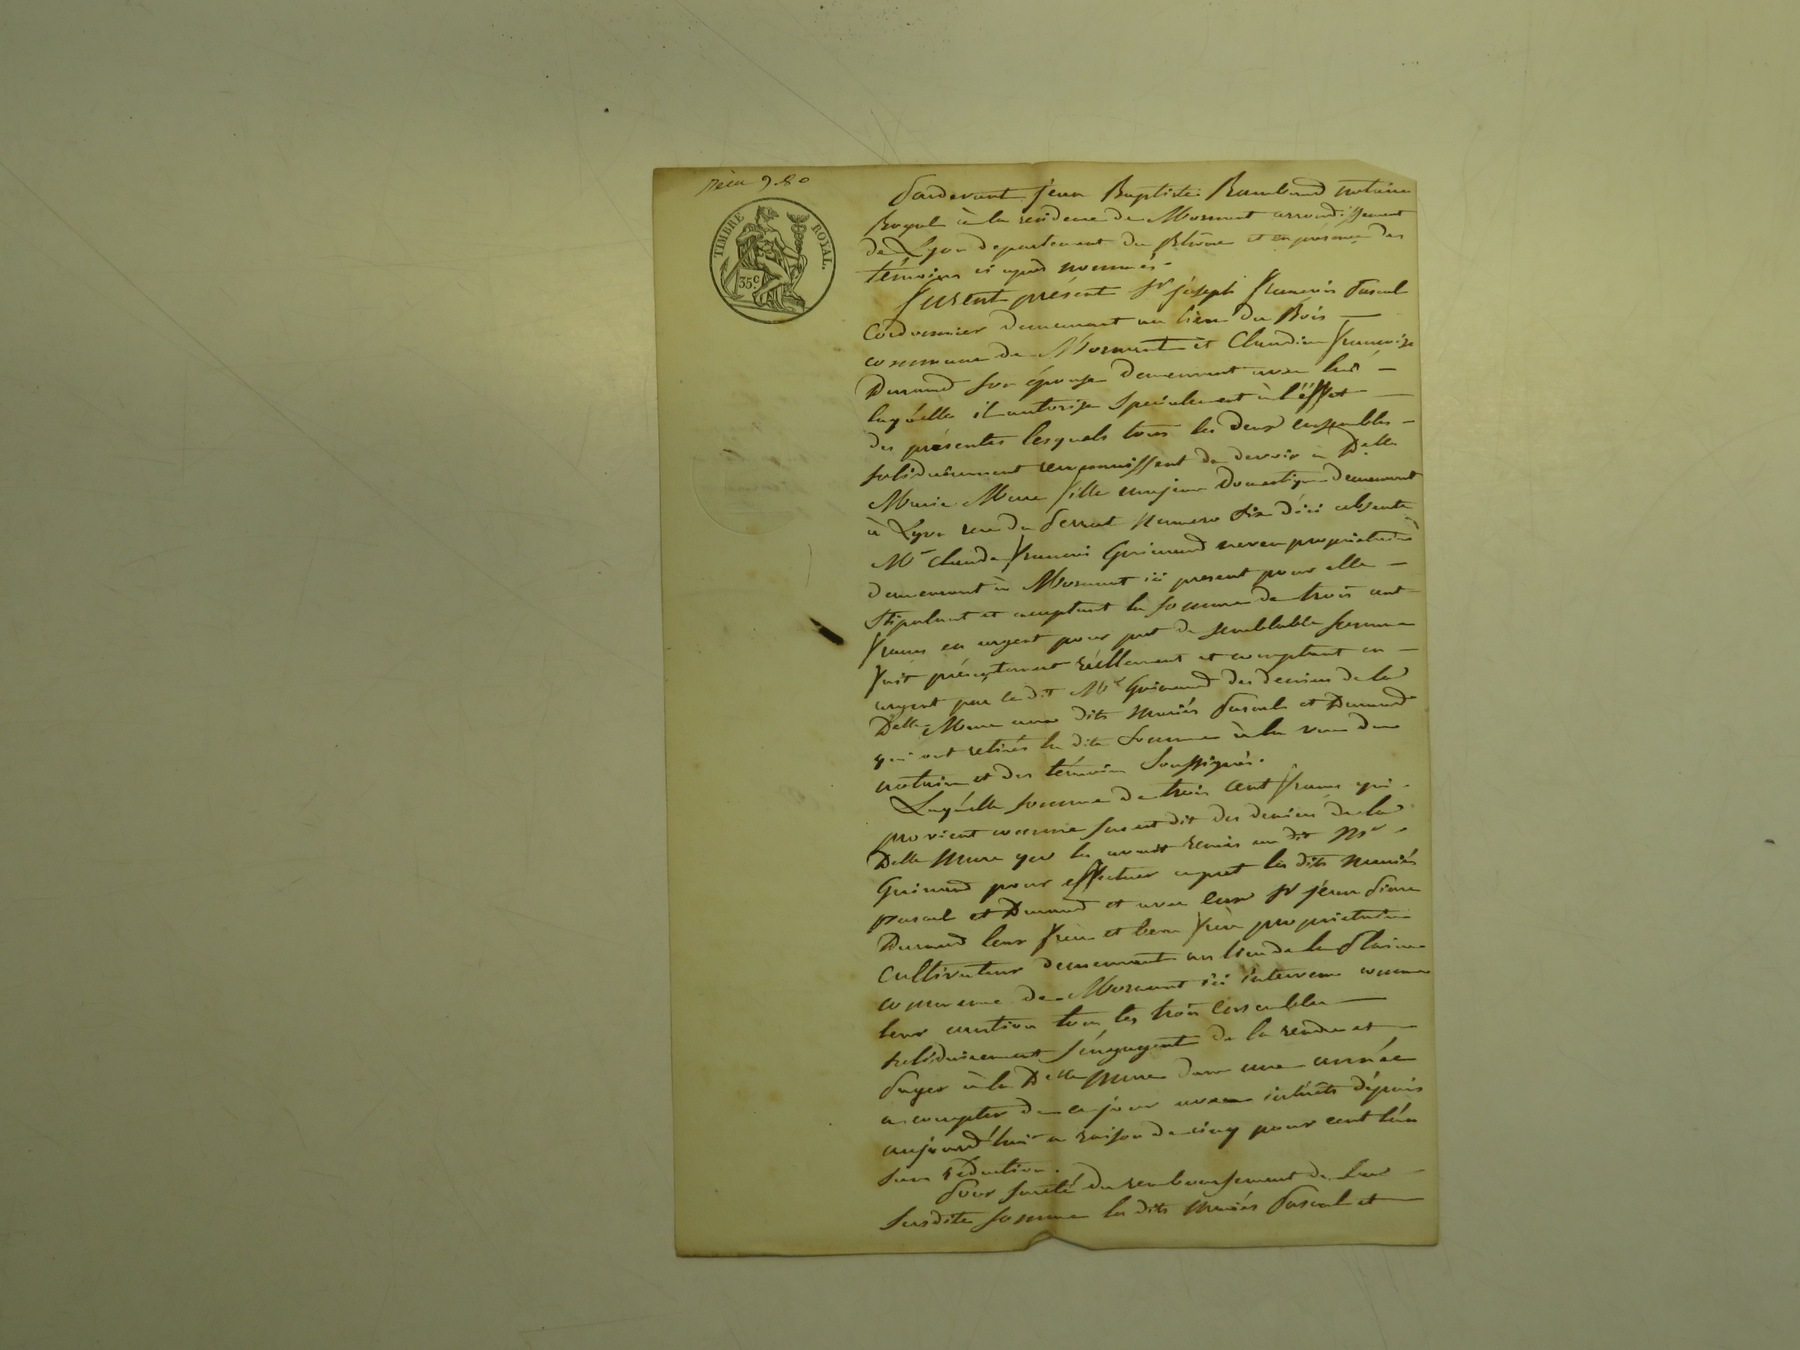 Pièce 9.80
TIMBRE ROYAL.
35c
Pardevant jean Baptiste Rambaud notaire
Royal à la residence de Mornant arrondissement
de Lyon departement du Rhône et en présence des
témoins ci après nommés
furent présent Sr joseph françois Pascal
Cordonnier demeurant au lieu du Bois
commune de Mornant et Claudine françoise
Durand son épouse demeurant avec lui
laquélle il autorise Specialement à l'éffet
des présentes lesquels tous les deux ensembles
solidairement reconnaissent de devoir à Delle
Marie Mure fille majeure Domestique demeurant
à Lyon rue du Perrat numero dix d'ici absente
Mr Claude françois Guinand neveu propriétaire
demeurant à Mornant ici present pour elle
Stipulant et acceptant la somme de trois cent
francs en argent pour prêt de semblable somme
fait présentement réellement et comptant en
argent par le dit Mr Guinand des deniers de la
Delle Mure aux dits mariés Pascal et Durand
qui ont retirés la dite somme à la vue du
notaire et des témoins Soussignés.
Laquélle somme de trois cent francs qui
provient comme sus est dit des deniers de la
Delle Mure que les avait remis au dit Mr
Guinand pour effectuer ce prêt les dits mariés
Pascal et Durand et avec eux Sr jean Pierre
Durand leur frère et beau frère propriétaire
Cultivateur demeurant au lieu de la Plaine
commune de Mornant ici intervenu comme
leur caution tous les trois ensembles
solidairement s'éngagent de la rendre et
Payer à la Delle Mure dans une année
a compter de ce jour avec intérêts dépuis
aujourd'hui a raison de cinq pour cent l'an
sans réduction.
Pour sureté du remboursement de la
Susdite somme les dits mariés Pascal et